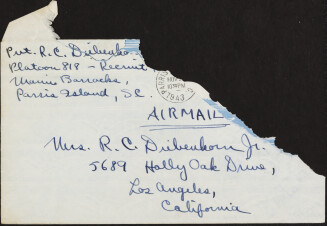 Pvt. R.C. Diebenko
Platoon 818 - Recruit
Marine Barracks,
Parris Island, S.C.
1943
AIRMAIL
Mrs. R. C. Diebenkorn Jr.
5689 Holly Oak Drive,
Los Angeles,
California